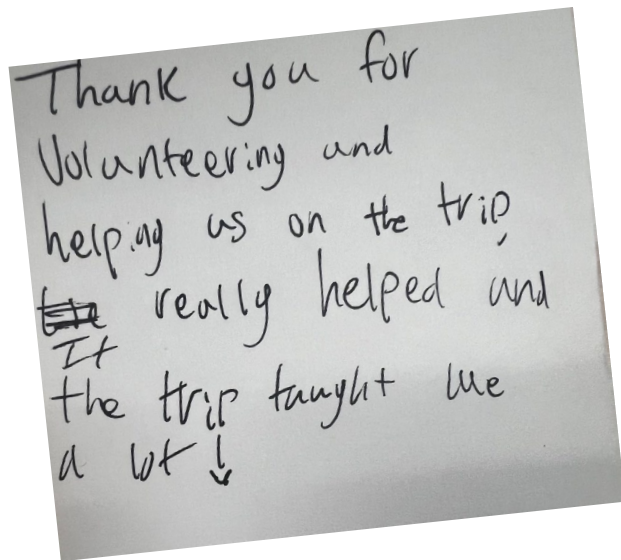 Thank you for
Volunteering and
helping us on the trip,
It really helped and
the trip taught me
a lot!